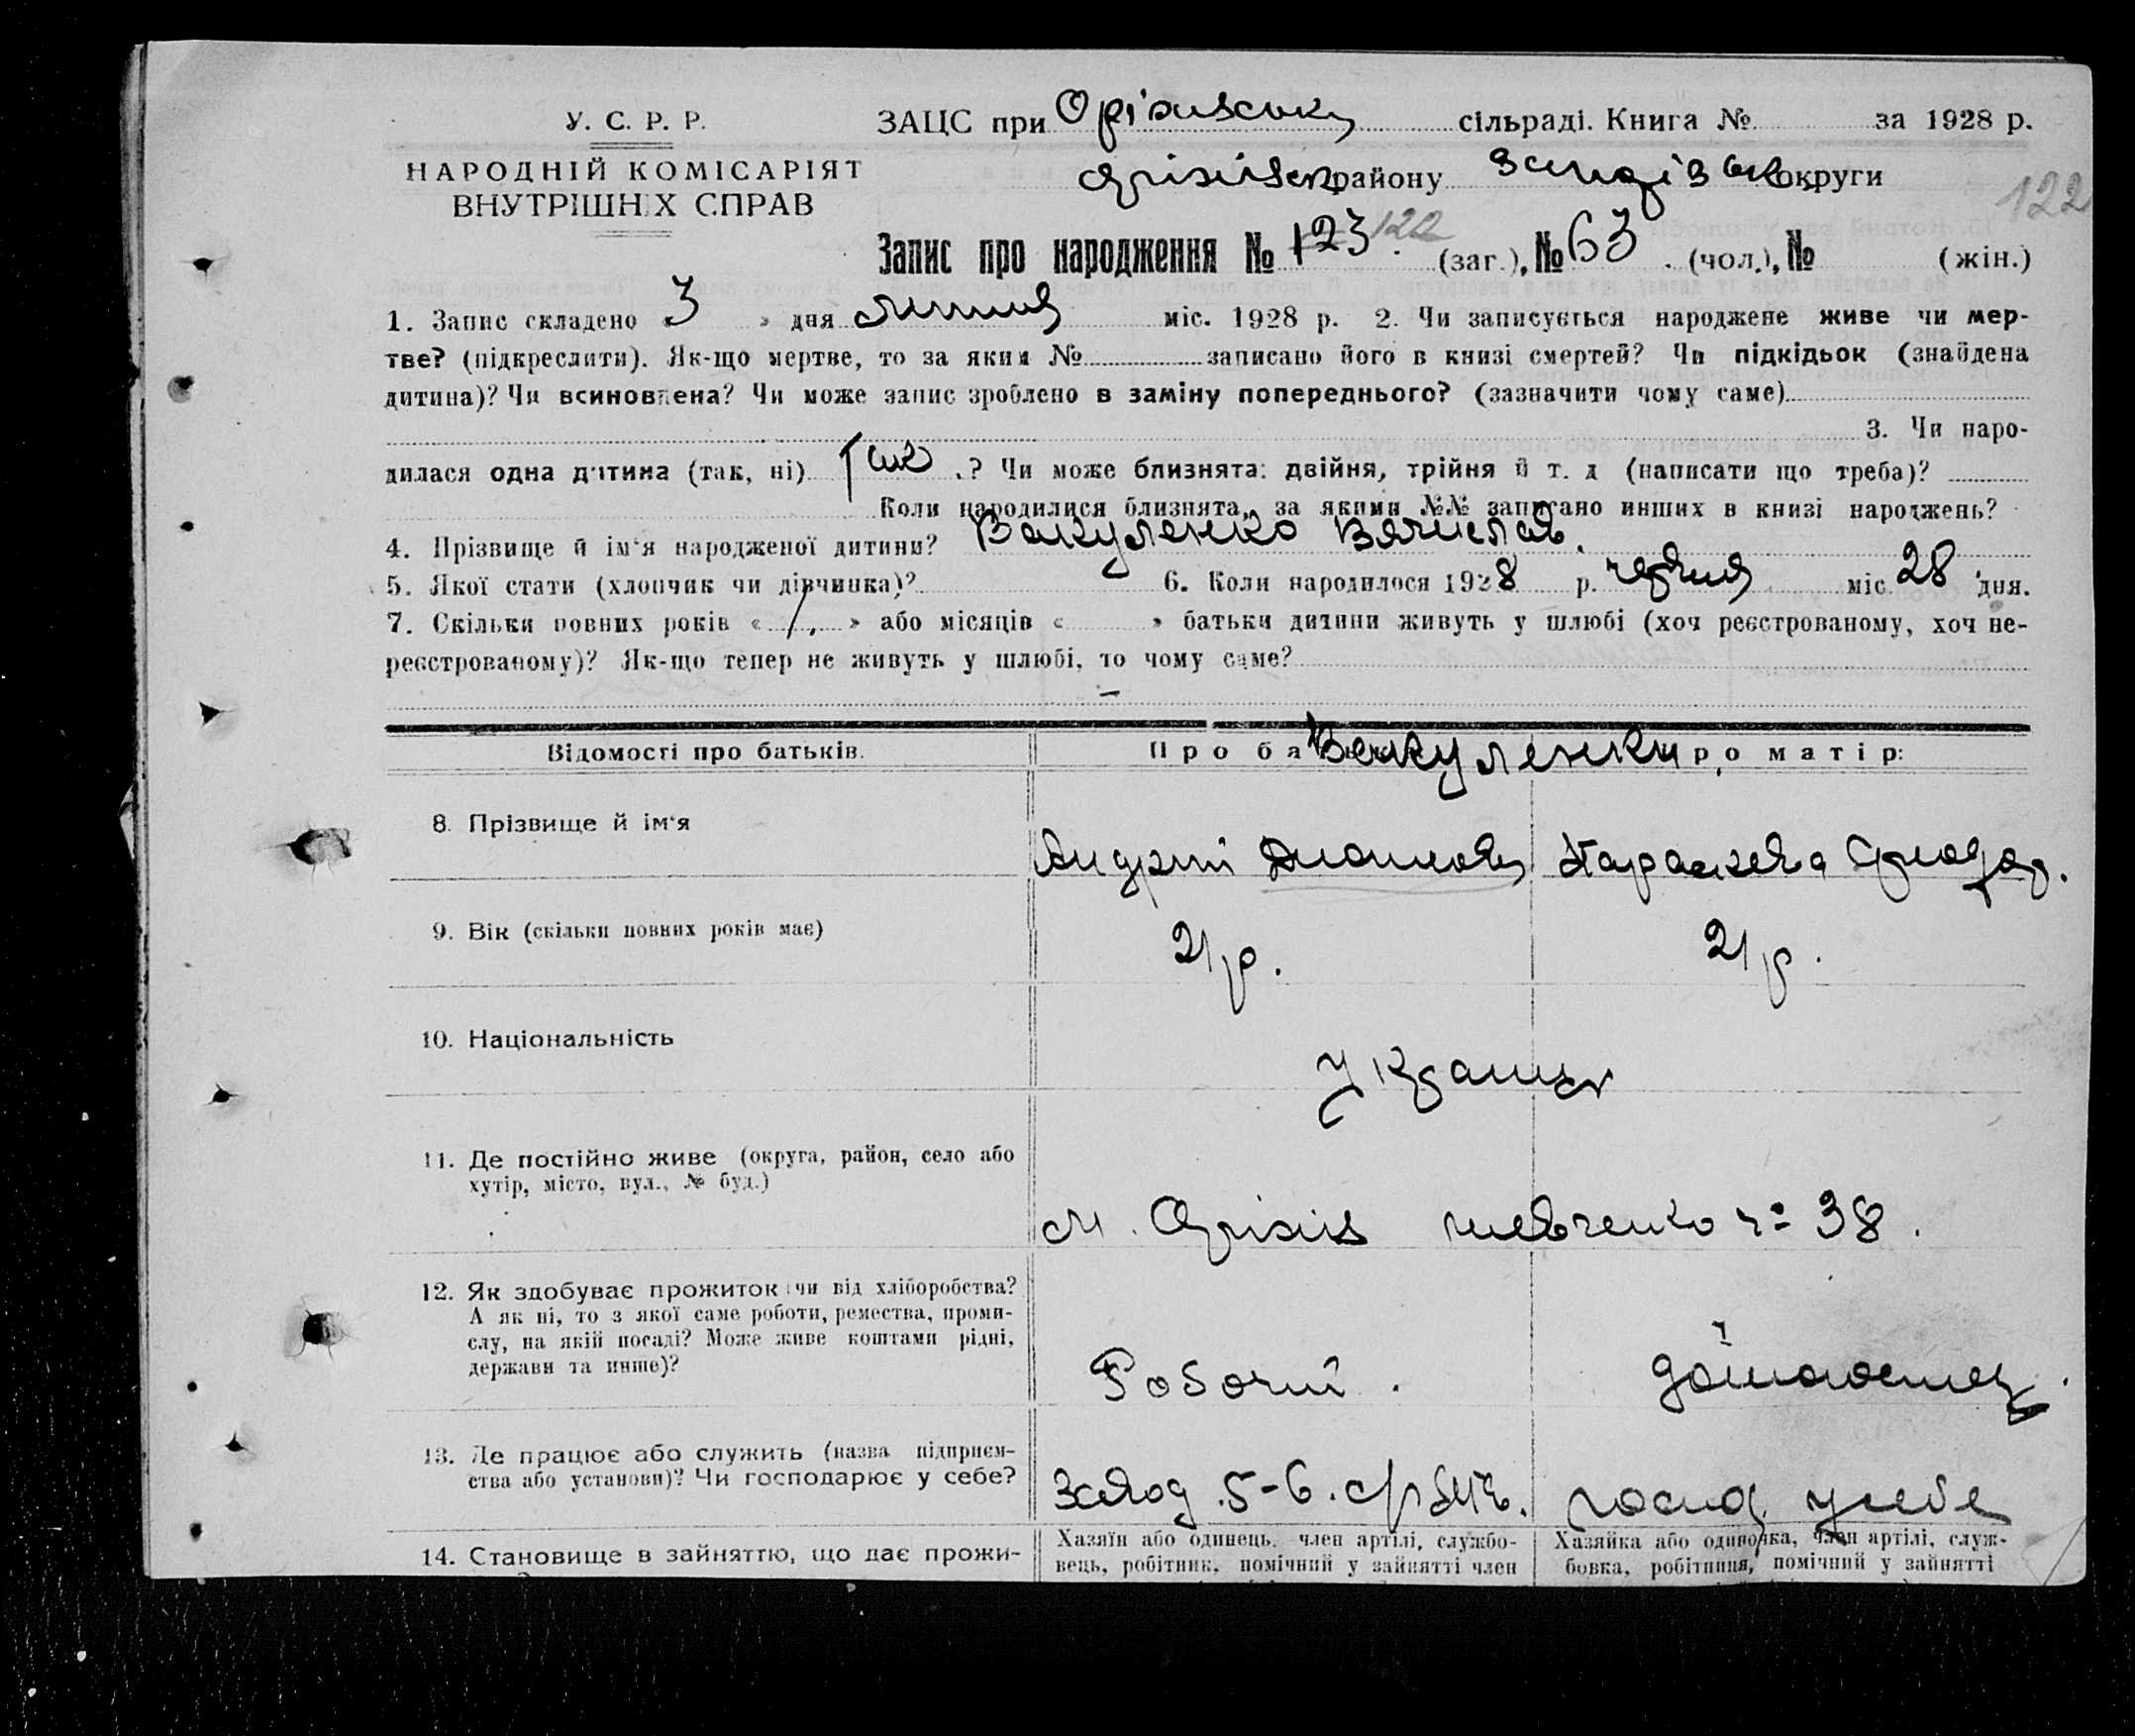 У. С. Р. Р.
НАРОДНІЙ КОМІСАРІЯТ
ВНУТРІШНІХ СПРАВ
ЗАЦС при Оріхівську сільраді. Книга № за 1928 р.
Оріхівськ району округи
122
Запис про народження № 123 122 (заг.), № 63 (чол.), № (жін.)
1. Запис складено « 3 » дня липня міс. 1928 р. 2. Чи записується народжене живе чи мер-
тве? (підкреслити). Як-що мертве, то за яким № записано його в книзі смертей? Чи підкідьок (знайдена
дитина)? Чи всиновлена? Чи може запис зроблено в заміну попереднього? (зазначити чому саме)
3. Чи наро-
дилася одна дитина (так, ні) так ? Чи може близнята: двійня, трійня й т. д (написати що треба)?
Коли народилися близнята, за якими №№ записано инших в книзі народжень?
4. Прізвище й ім'я народженої дитини? Вакуленко Вячислав.
5. Якої стати (хлопчик чи дівчинка)? 6. Коли народилося 1928 р. червня міс 28 дня.
7. Скільки повних років « 1, » або місяців « » батьки дитини живуть у шлюбі (хоч реєстрованому, хоч не-
реєстрованому)? Як-що тепер не живуть у шлюбі, то чому саме?
–
Відомості про батьків. Про ба Вакуленки ро матір:
8. Прізвище й ім'я
Андрій Параскева
9. Вік (скільки повних років має)
21 р. 21 р.
10. Національність
Українці
11. Де постійно живе (округа, район, село або
хутір, місто, вул., № буд.)
м. Оріхів Шевченко № 38.
12. Як здобуває прожиток чи від хліборобства?
А як ні, то з якої саме роботи, ремества, проми-
слу, на якій посаді? Може живе коштами рідні,
держави та инше)?
Робочий.
13. Де працює або служить (назва підприєм-
ства або установи)? Чи господарює у себе?
Завод 5-6. госпд. у себе
14. Становище в зайняттю, що дає прожи-
Хазяїн або одинець, член артілі, службо-
вець, робітник, помічний у зайнятті член
Хазяйка або одиночка, член артілі, служ-
бовка, робітниця, помічний у зайнятті